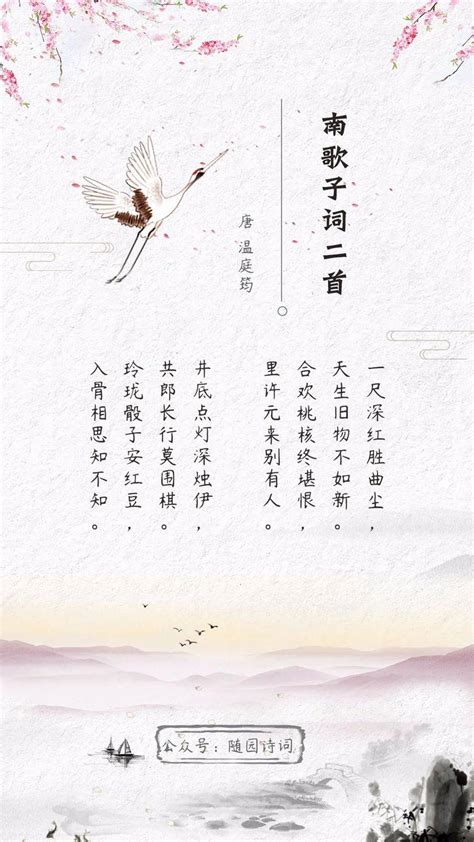 南歌子词二首
唐 温庭筠
一尺深红胜曲尘，
天生旧物不如新。
合欢桃核终堪恨，
里许元来别有人。
井底点灯深烛伊，
共郎长行莫围棋。
玲珑骰子安红豆，
入骨相思知不知。
公众号：随园诗词